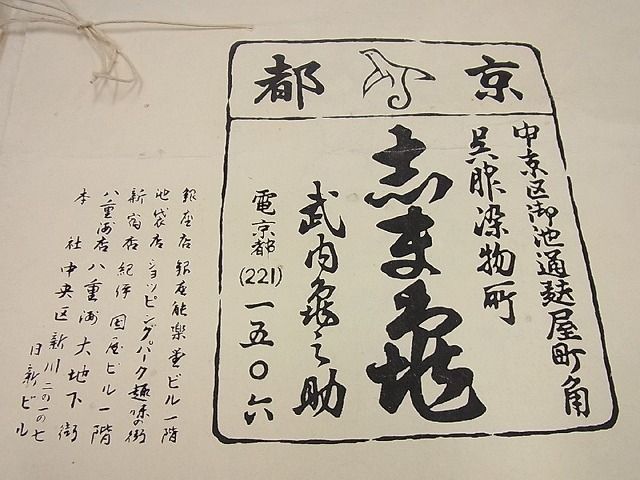 京都
中京区御池通麩屋町角
呉服染物所
志ま亀
武内亀之助
電京都(221)一五〇六
銀座店 銀座能楽堂ビル一階
池袋店 ショッピングパーク趣味の街
新宿店 紀伊國屋ビル一階
八重洲店 八重洲大地下街
本社 中央区新川二の一の七
日新ビル